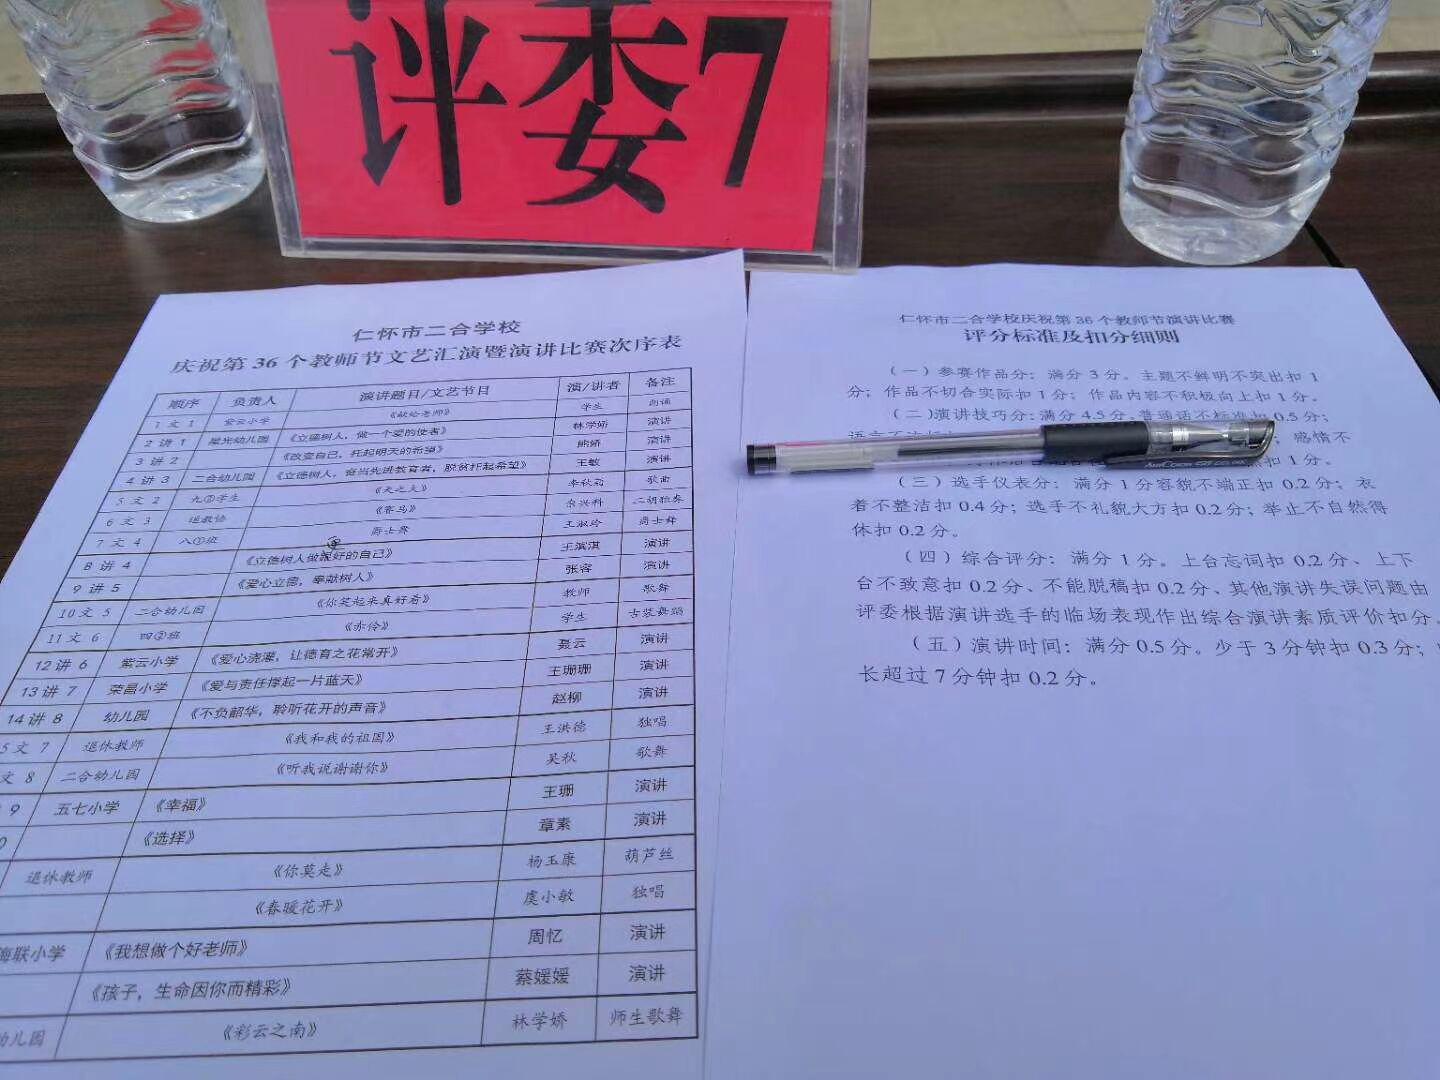 评委7
仁怀市二合学校
庆祝第 36 个教师节文艺汇演暨演讲比赛次序表
顺序 负责人 演讲题目/文艺节目 演/讲者 备注
1 文 1 紫云小学 《献给老师》 学生 朗诵
2 讲 1 星光幼儿园 《立德树人，做一个爱的使者》 林学娇 演讲
3 讲 2 《改变自己，托起明天的希望》 熊娇 演讲
4 讲 3 二合幼儿园 《立德树人，奋当先进教育者，脱贫托起希望》 王敏 演讲
5 文 2 九②学生 《天之大》 李秋菊 歌曲
6 文 3 退教协 《赛马》 余兴科 二胡独奏
7 文 4 八①班 爵士舞 王淑玲 爵士舞
8 讲 4 《立德树人做最好的自己》 王滨淇 演讲
更
9 讲 5 《爱心立德，奉献树人》 张容 演讲
10 文 5 二合幼儿园 《你笑起来真好看》 教师 歌舞
11 文 6 四②班 《赤伶》 学生 古装舞蹈
12 讲 6 紫云小学 《爱心浇灌，让德育之花常开》 聂云 演讲
13 讲 7 荣昌小学 《爱与责任撑起一片蓝天》 王珊珊 演讲
14 讲 8 幼儿园 《不负韶华，聆听花开的声音》 赵柳 演讲
5 文 7 退休教师 《我和我的祖国》 王洪德 独唱
文 8 二合幼儿园 《听我说谢谢你》 吴秋 歌舞
9 五七小学 《幸福》 王珊 演讲
0 《选择》 章素 演讲
退休教师 《你莫走》 杨玉康 葫芦丝
《春暖花开》 虞小敏 独唱
海联小学 《我想做个好老师》 周忆 演讲
《孩子，生命因你而精彩》 蔡媛媛 演讲
幼儿园 《彩云之南》 林学娇 师生歌舞
仁怀市二合学校庆祝第 36 个教师节演讲比赛
评分标准及扣分细则
（一）参赛作品分：满分 3 分。主题不鲜明不突出扣 1
分；作品不切合实际扣 1 分；作品内容不积极向上扣 1 分。
（二）演讲技巧分：满分 4.5 分。普通话不标准扣 0.5 分；
感情不
扣 1 分。
（三）选手仪表分：满分 1 分容貌不端正扣 0.2 分；衣
着不整洁扣 0.4 分；选手不礼貌大方扣 0.2 分；举止不自然得
体扣 0.2 分。
（四）综合评分：满分 1 分。上台忘词扣 0.2 分、上下
台不致意扣 0.2 分、不能脱稿扣 0.2 分、其他演讲失误问题由
评委根据演讲选手的临场表现作出综合演讲素质评价扣分。
（五）演讲时间：满分 0.5 分。少于 3 分钟扣 0.3 分；
长超过 7 分钟扣 0.2 分。